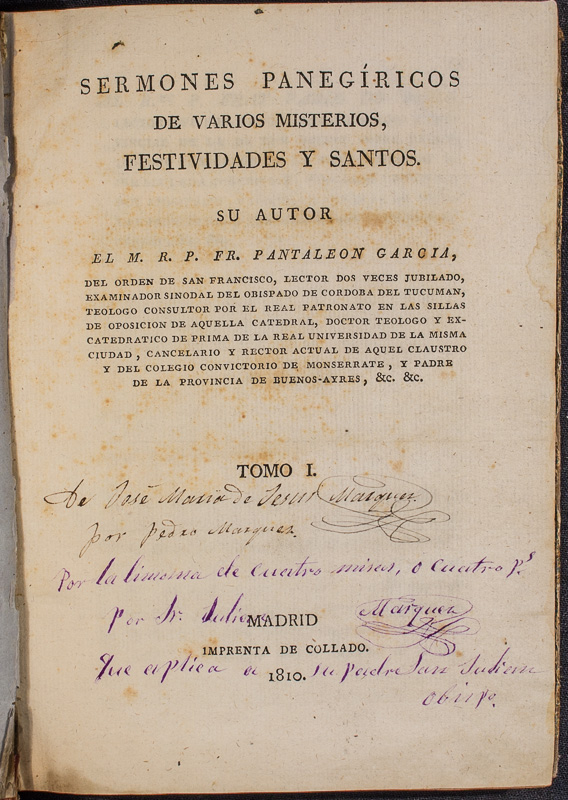 SERMONES PANEGÍRICOS
DE VARIOS MISTERIOS,
FESTIVIDADES Y SANTOS.
SU AUTOR
EL M. R. P. FR. PANTALEON GARCIA,
DEL ORDEN DE SAN FRANCISCO, LECTOR DOS VECES JUBILADO,
EXAMINADOR SINODAL DEL OBISPADO DE CORDOBA DEL TUCUMAN,
TEOLOGO CONSULTOR POR EL REAL PATRONATO EN LAS SILLAS
DE OPOSICION DE AQUELLA CATEDRAL, DOCTOR TEOLOGO Y EX-
CATEDRATICO DE PRIMA DE LA REAL UNIVERSIDAD DE LA MISMA
CIUDAD, CANCELARIO Y RECTOR ACTUAL DE AQUEL CLAUSTRO
Y DEL COLEGIO CONVICTORIO DE MONSERRATE, Y PADRE
DE LA PROVINCIA DE BUENOS-AYRES, &c. &c.
TOMO I.
De José Maria de Jesus Marquez
por Pedro Marquez.
Por la limosna de cuatro misas, o cuatro p.s
por Sr. Julian Marquez
MADRID
IMPRENTA DE COLLADO.
Que aplica a su padre San Julian
1810.
obispo.